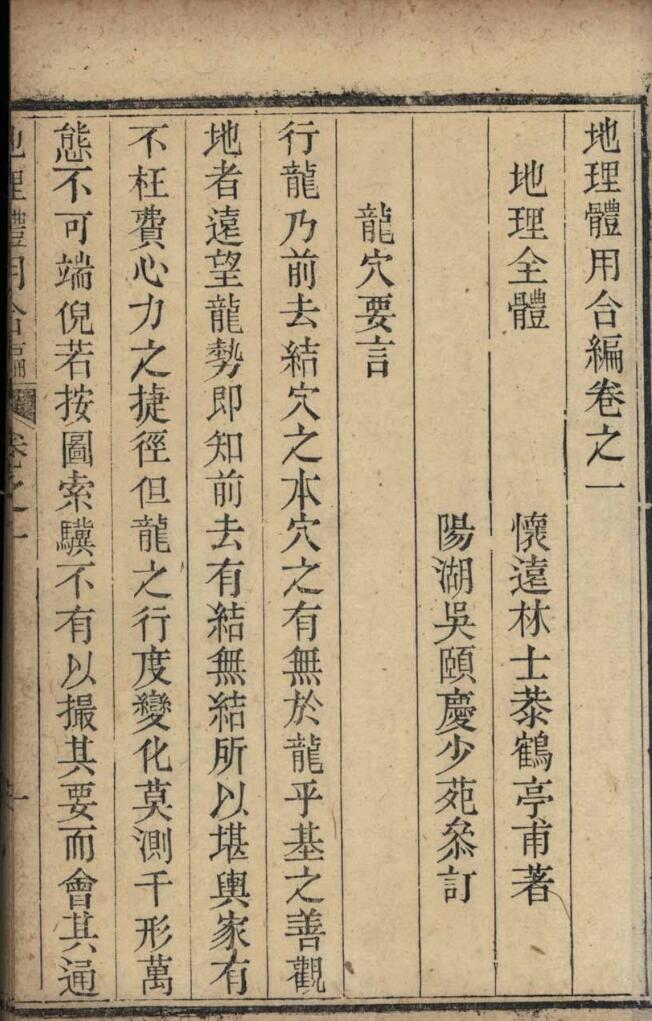 地理體用合編卷之一
地理全體
懷遠林士恭鶴亭甫著
陽湖吳頤慶少苑叅訂
龍穴要言
行龍乃前去結穴之本穴之有無於龍乎基之善觀
地者遠望龍勢即知前去有結無結所以堪輿家有
不枉費心力之捷徑但龍之行度變化莫測千形萬
態不可端倪若按圖索驥不有以撮其要而會其通
地理體用合編
卷之一
一